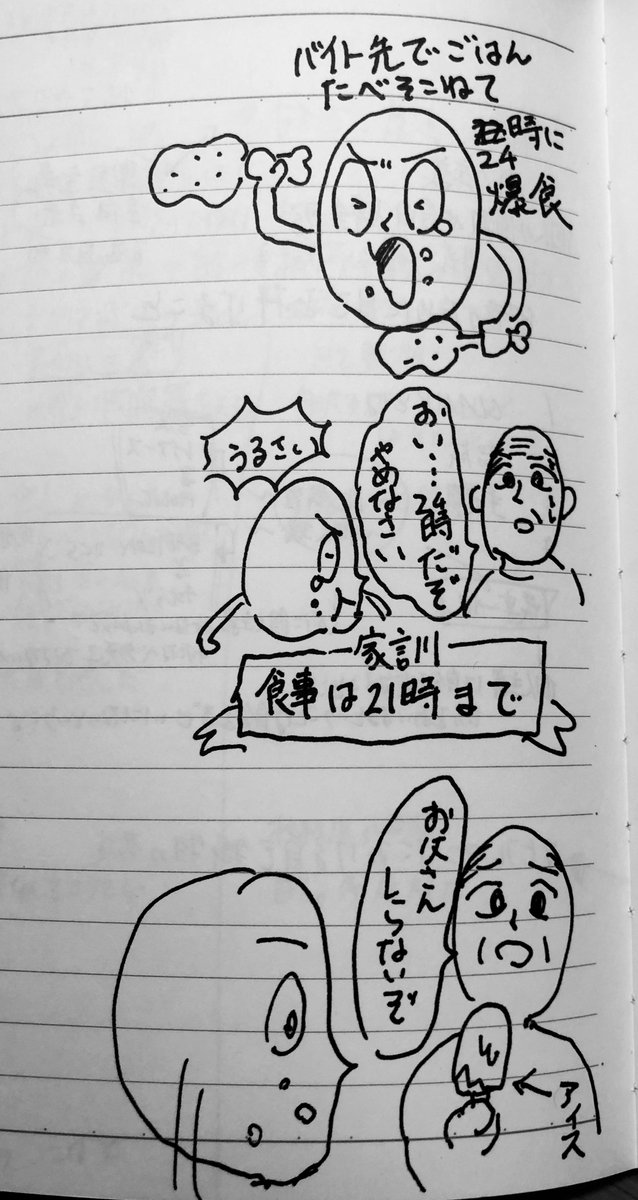 バイト先でごはん
たべそこねて
24時に
爆食
おい…24時だぞ
やめなさい
うるさい
家訓
食事は21時まで
お父さん
しらないぞ
アイス